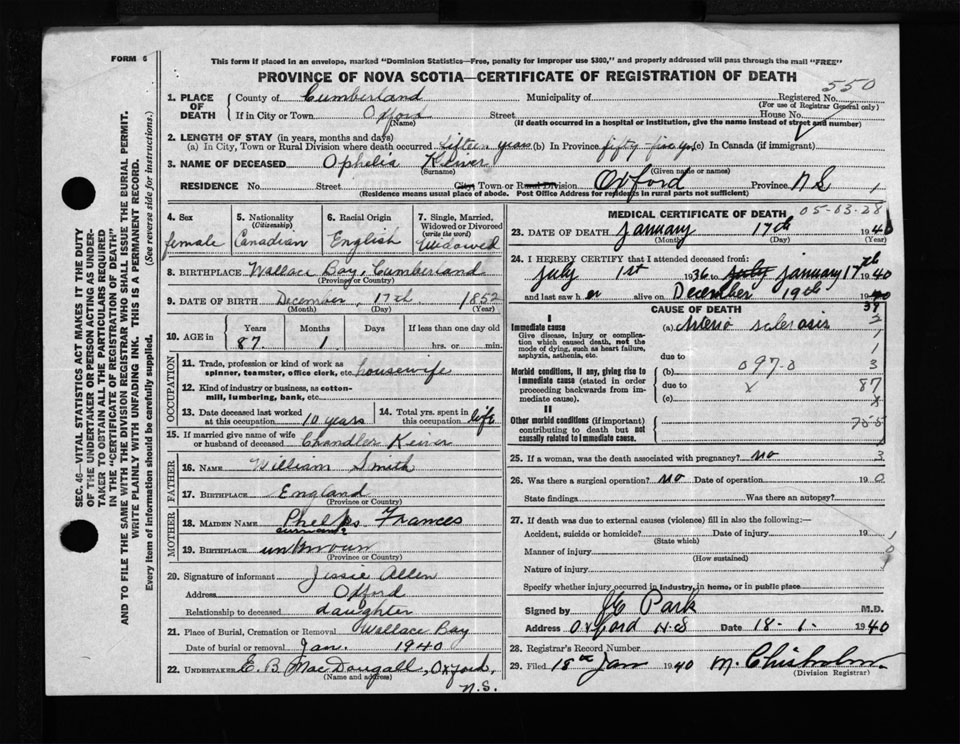 FORM 6
This form if placed in an envelope, marked "Dominion Statistics—Free, penalty for improper use $300," and properly addressed will pass through the mail "FREE"
PROVINCE OF NOVA SCOTIA—CERTIFICATE OF REGISTRATION OF DEATH
550
1. PLACE OF DEATH
County of Cumberland Municipality of Registered No.
(For use of Registrar General only)
If in City or Town Oxford Street House No.
(Name) (If death occurred in a hospital or institution, give the name instead of street and number)
2. LENGTH OF STAY (in years, months and days)
(a) In City, Town or Rural Division where death occurred fifteen years (b) In Province (c) In Canada (if immigrant)
3. NAME OF DECEASED Ophelia Keiver
(Surname) (Given name or names)
RESIDENCE No. Street City Town or Rural Division Oxford Province N.S. 1
(Residence means usual place of abode. Post Office Address for residents in rural parts not sufficient)
4. Sex
female
5. Nationality (Citizenship)
Canadian
6. Racial Origin
English
7. Single, Married, Widowed or Divorced (write the word)
Widowed
8. BIRTHPLACE Wallace Bay, Cumberland
(Province or Country)
9. DATE OF BIRTH December, 17th 1852
(Month) (Day) (Year)
10. AGE in
Years Months Days If less than one day old
87 1 hrs. or min.
OCCUPATION
11. Trade, profession or kind of work as spinner, teamster, office clerk, etc. housewife
12. Kind of industry or business, as cotton-mill, lumbering, bank, etc.
13. Date deceased last worked at this occupation 10 years
14. Total yrs. spent in this occupation life
15. If married give name of wife or husband of deceased Chandler Keiver
FATHER
16. NAME William Smith
17. BIRTHPLACE England
MOTHER
18. MAIDEN NAME Phelps Frances
surname
19. BIRTHPLACE unknown
(Province or Country)
20. Signature of informant Jessie Allen
Address Oxford
Relationship to deceased daughter
21. Place of Burial, Cremation or Removal Wallace Bay
Date of burial or removal Jan. 1940
22. UNDERTAKER E. B. MacDougall, Oxford,
(Name and address) N.S.
MEDICAL CERTIFICATE OF DEATH 05-03-28
23. DATE OF DEATH January 17th 1940
(Month) (Day) (Year)
24. I HEREBY CERTIFY that I attended deceased from:
July 1st 1936 to July January 17th 1940
and last saw her alive on December 19th 1940
39
CAUSE OF DEATH
I
Immediate cause (a) Arterio sclerosis
Give disease, injury or complication which caused death, not the mode of dying, such as heart failure, asphyxia, asthenia, etc.
due to
Morbid conditions, if any, giving rise to immediate cause (stated in order proceeding backwards from immediate cause).
(b) 097.0 3
due to x 87
(c) 8
II
Other morbid conditions (if important) contributing to death but not causally related to immediate cause.
25. If a woman, was the death associated with pregnancy? no 3
26. Was there a surgical operation? no Date of operation 19 0
State findings Was there an autopsy?
27. If death was due to external causes (violence) fill in also the following:—
Accident, suicide or homicide? Date of injury 19
(State which)
Manner of injury
(How sustained)
Nature of injury
Specify whether injury occurred in industry, in home, or in public place
Signed by Park M.D.
Address Oxford N.S Date 18-1- 1940
28. Registrar's Record Number
29. Filed 18th Jan 1940 M. Chisholm
(Division Registrar)
SEC. 46—VITAL STATISTICS ACT MAKES IT THE DUTY
OF THE UNDERTAKER OR PERSON ACTING AS UNDER-
TAKER TO OBTAIN ALL THE PARTICULARS REQUIRED
IN THE "CERTIFICATE OF REGISTRATION OF DEATH"
AND TO FILE THE SAME WITH THE DIVISION REGISTRAR WHO SHALL ISSUE THE BURIAL PERMIT.
WRITE PLAINLY WITH UNFADING INK. THIS IS A PERMANENT RECORD.
Every item of information should be carefully supplied. (See reverse side for instructions.)